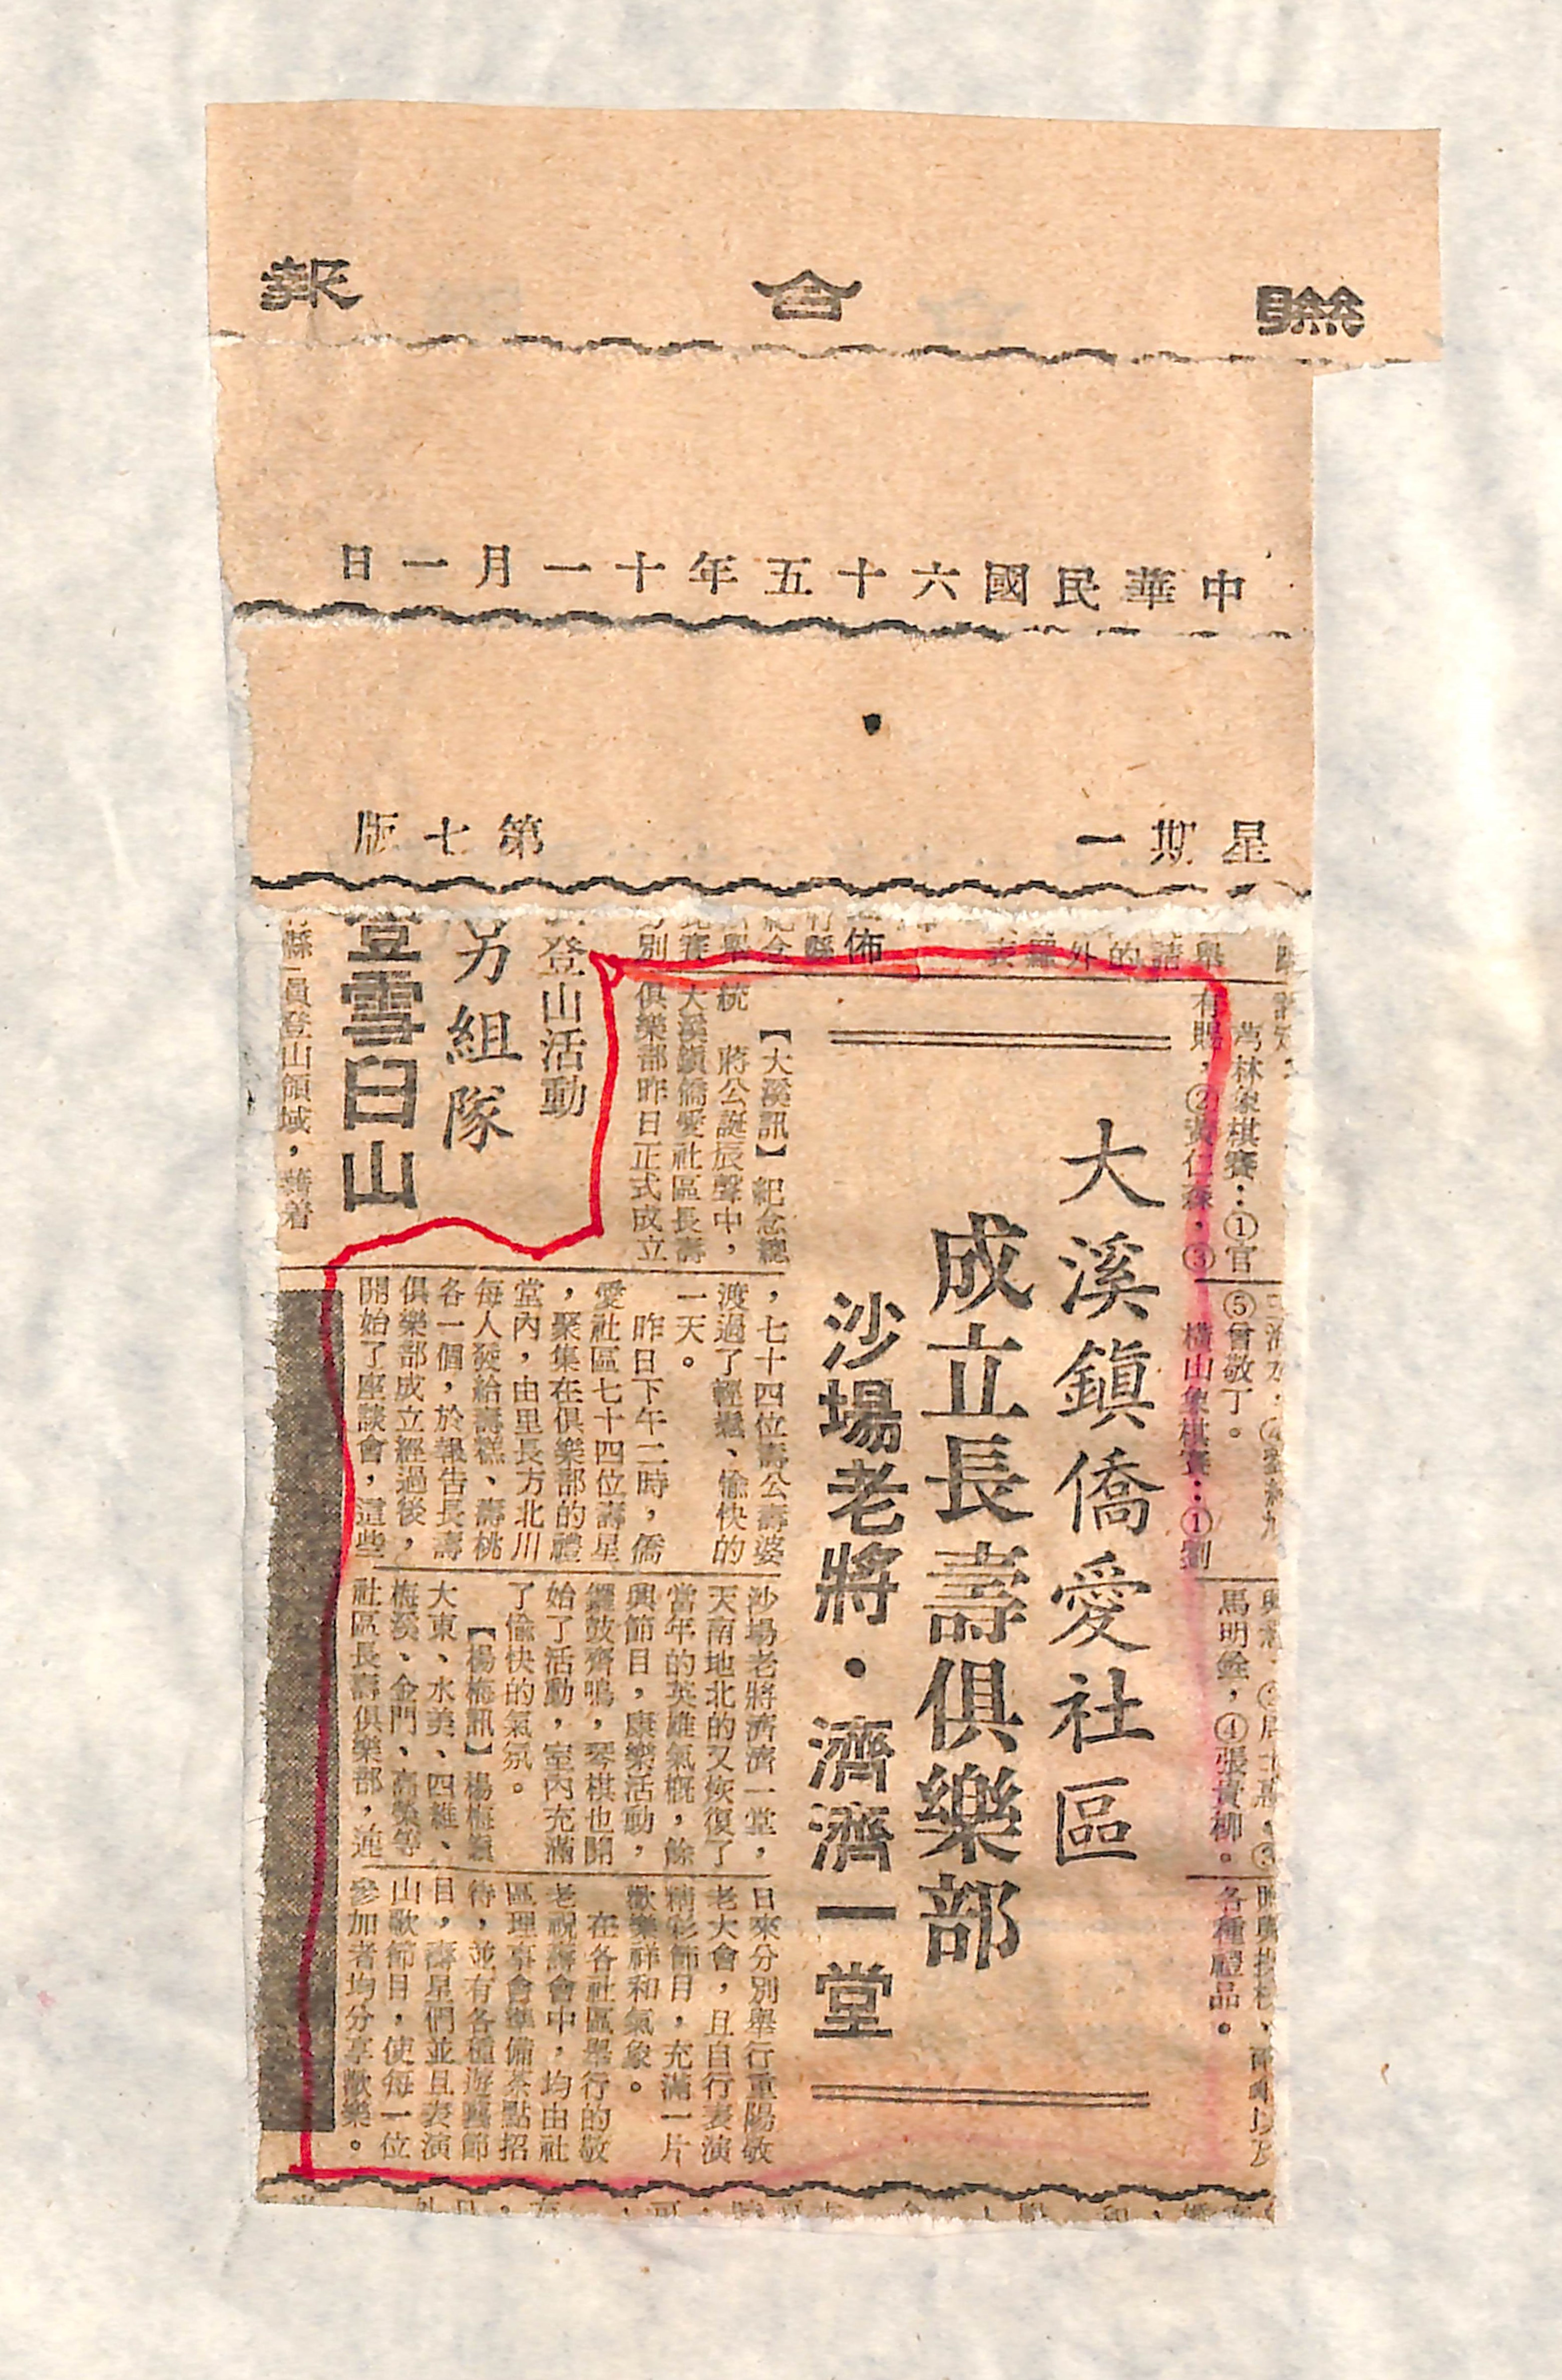 聯合報
中華民國六十五年十一月一日
星期一
第七版
大溪鎮僑愛社區
成立長壽俱樂部
沙場老將・濟濟一堂
【大溪訊】紀念總
統　蔣公誕辰聲中，
大溪鎮僑愛社區長壽
俱樂部昨日正式成立
，七十四位壽公壽婆
渡過了輕鬆、愉快的
一天。
昨日下午二時，僑
愛社區七十四位壽星
，聚集在俱樂部的禮
堂內，由里長方北川
每人發給壽糕、壽桃
各一個，於報告長壽
俱樂部成立經過後，
開始了座談會，這些
沙場老將濟濟一堂，
天南地北的又恢復了
當年的英雄氣概，餘
興節目，康樂活動，
鑼鼓齊鳴，琴棋也開
始了活動，室內充滿
了愉快的氣氛。
【楊梅訊】楊梅鎮
大東、水美、四維、
梅溪、金門、高榮等
社區長壽俱樂部，近
日來分別舉行重陽敬
老大會，且自行表演
精彩節目，充滿一片
歡樂祥和氣象。
在各社區舉行的敬
老祝壽會中，均由社
區理事會準備茶點招
待，並有各種遊藝節
目，壽星們並且表演
山歌節目，使每一位
參加者均分享歡樂。
林象棋賽：①官
有賜，②黃仁森，③
⑤曾敬丁。
橫山象棋賽：①劉
馬明銓，④張貴柳。
各種禮品。
登山活動
另組隊
登雪白山
縣員登山領域，藉着